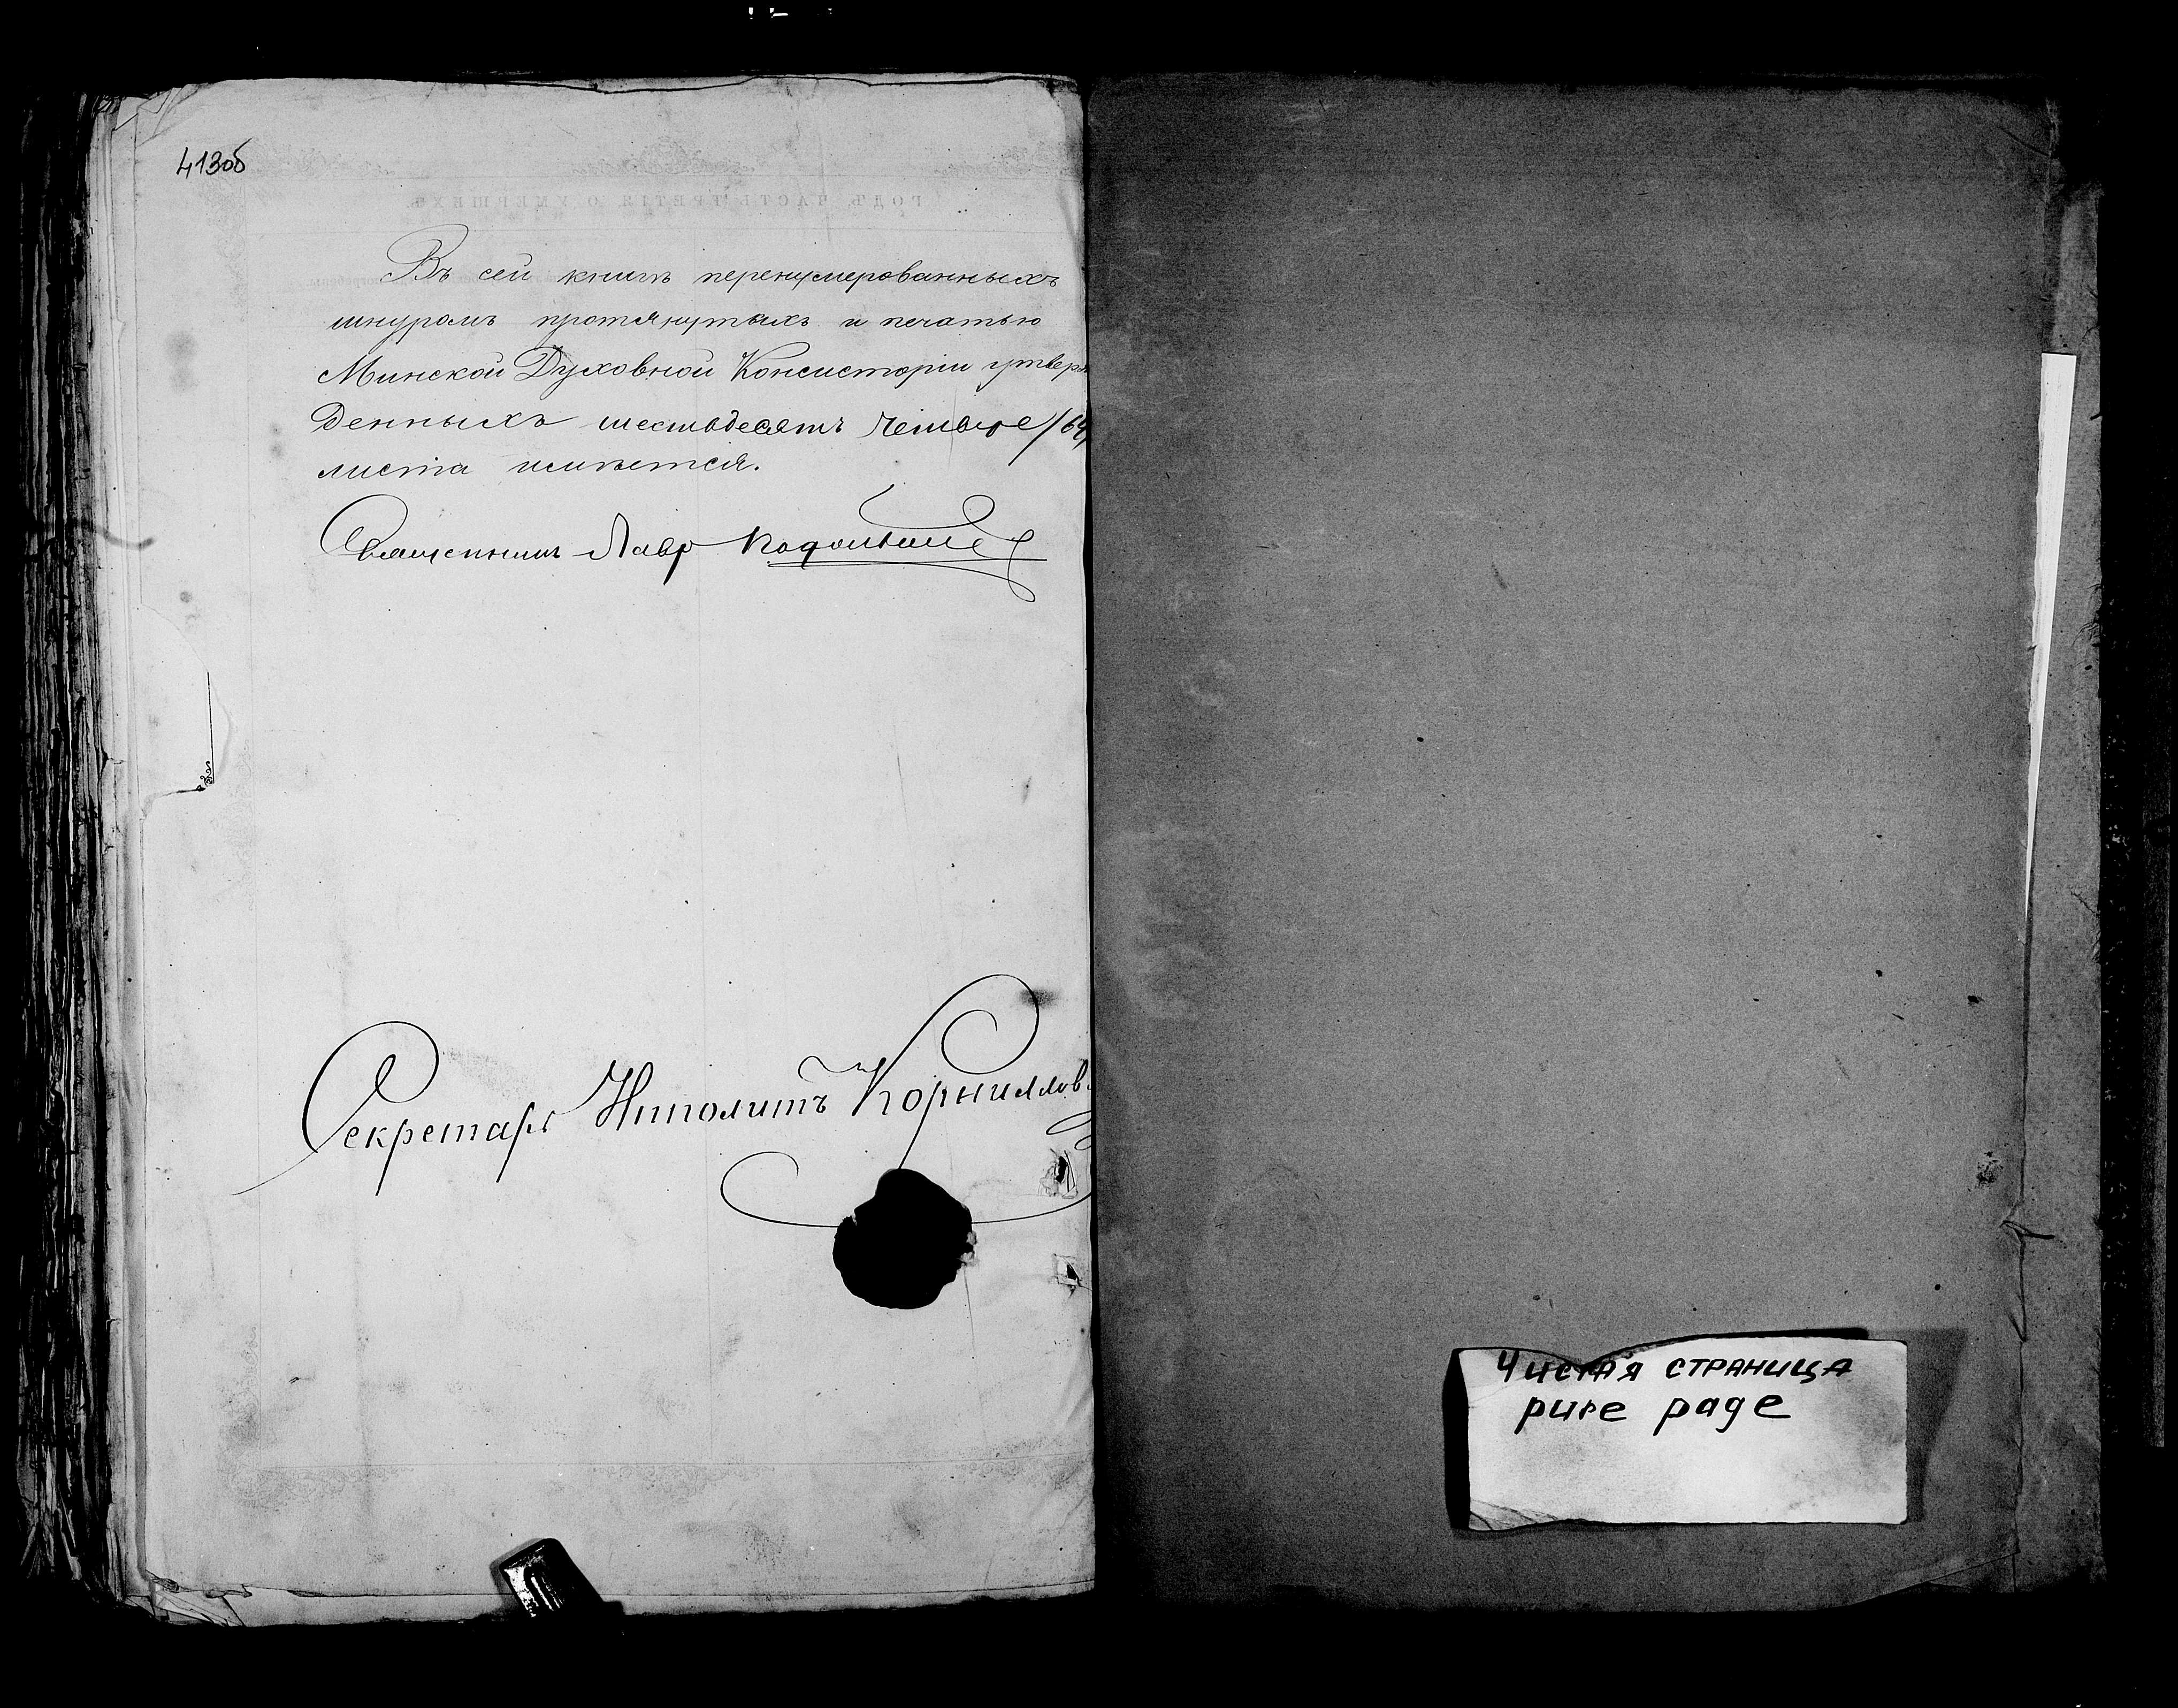 413об
Въ сей книгѣ перенумерованныхъ
шнуромъ протянутыхъ и печатью
Минской Духовной Консисторіи утверж
денныхъ шестьдесятъ четыре /64/
листа имѣется.
Священникъ Лавр
Секретарь Ипполитъ Корниллов
Чистая страница
pure page